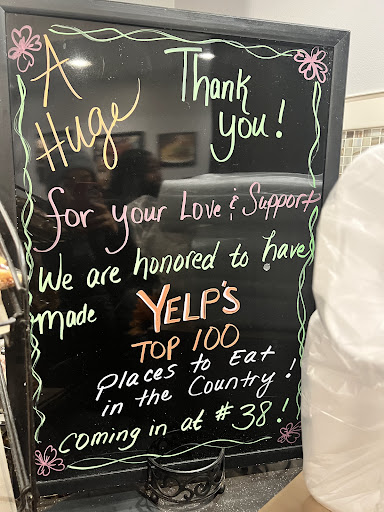 A Huge
Thank you!
for your Love & Support
We are honored to have
made YELP'S
TOP 100
Places to Eat
in the Country!
Coming in at #38!